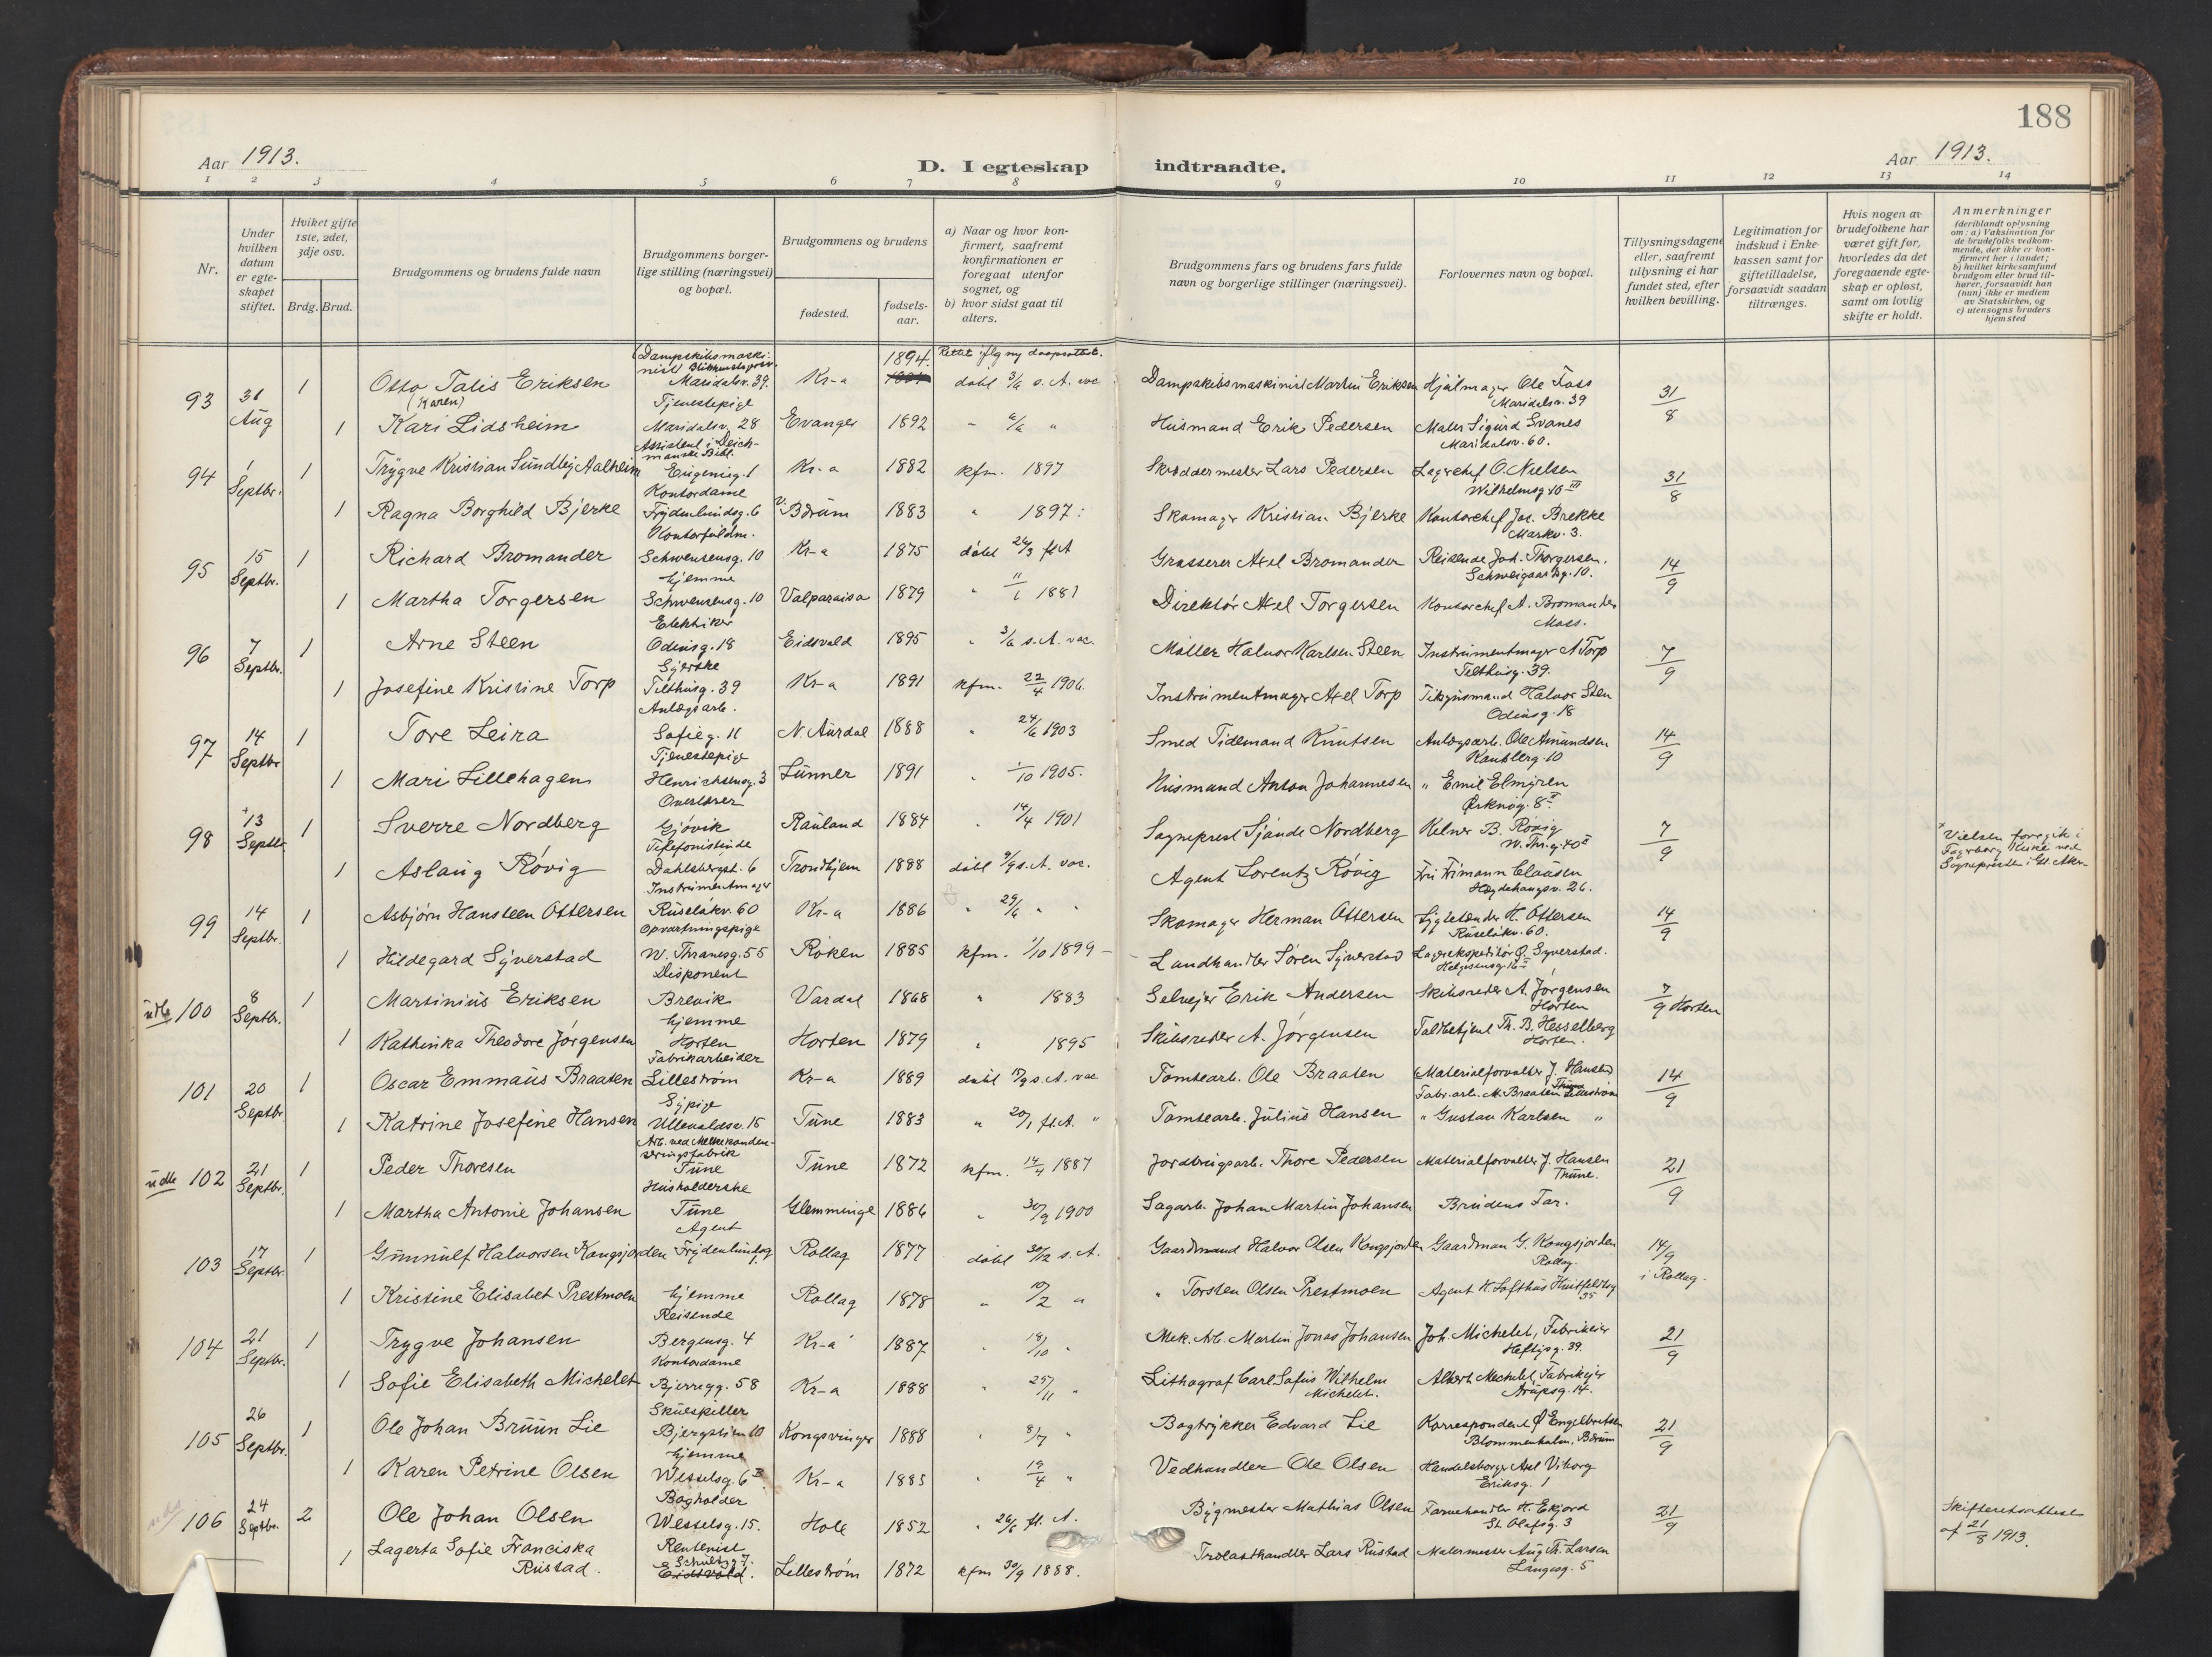 188
Aar 1913.
D. I egteskap indtraadte.
Aar 1913.
1 2 3 4 5 6 7 8 9 10 11 12 13 14
Nr.
Under hvilken datum er egteskapet stiftet.
Hviket gifte 1ste, 2det, 3dje osv.
Brdg. Brud.
Brudgommens og brudens fulde navn
Brudgommens borgerlige stilling (næringsvei) og bopæl.
Brudgommens og brudens
fødested.
fødselsaar.
a) Naar og hvor konfirmert, saafremt konfirmationen er foregaat utenfor sognet, og
b) hvor sidst gaat til alters.
Brudgommens fars og brudens fars fulde navn og borgerlige stillinger (næringsvei).
Forlovernes navn og bopæl.
Tillysningsdagene eller, saafremt tillysning ei har fundet sted, efter hvilken bevilling.
Legitimation for indskud i Enkekassen samt for giftetilladelse, forsaavidt saadan tiltrænges.
Hvis nogen av brudefolkene har været gift før, hvorledes da det foregaaende egteskap er opløst, samt om lovlig skifte er holdt.
Anmerkninger (deriblandt oplysning om: a) Vaksination for de brudefolks vedkommende, der ikke er konfirmert her i landet; b) hvilket kirkesamfund brudgom eller brud tilhører, forsaavidt han (hun) ikke er medlem av Statskirken, og c) utensogns bruders hjemsted
93 31 Aug 1 Otto Talis Eriksen Dampskibsmaskinist Maridalsv. 39. Kr-a 1894. Rettet iflg ny daapsattest. døbt 3/6 s. A. vac Dampskibsmaskinist Martin Eriksen Hjulmager Ole Foss Maridalsv. 39 31/8
1 (Karen) Kari Lidsheim Tjenestepige Maridalsv. 28 Evanger 1892 - 6/6 " Husmand Erik Pedersen Maler Sigurd Svanes Maridalsv. 60.
94 1 Septbr. 1 Trygve Kristian Sundby Aalheim Assistent i Deichmanske Bibl. Eugenisg. 1 Kr-a 1882 kfm. 1897 Skræddermester Lars Pedersen Lagerchef O. Nielsen Wilhelmsg 10 III 31/8
1 Ragna Borghild Bjerke Kontordame Frydenlundsg. 6 V. Bærum 1883 " 1897. Skomager Kristian Bjerke Kontorchef Jos. Brekke Markv. 3.
95 15 Septbr. 1 Richard Bromander Kontorfuldm. Schwensensg. 10 Kr-a 1875 døbt 26/3 fl A Grosserer Axel Bromander Reisende Joh. Thorgersen. Schweigaardsg. 10. 14/9
1 Martha Torgersen hjemme Schwensensg. 10 Valparaiso 1879 " 11/1 1881 Direktør Axel Torgersen Kontorchef A. Bromander Moss.
96 7 Septbr. 1 Arne Steen Elektriker Odinsg. 18 Eidsvold 1895 " 3/6 s. A. vac. Møller Halvor Karlsen Steen Instrumentmager A Torp Tilthusg. 39. 7/9
1 Josefine Kristine Torp Syerske Tilthusg. 39 Kr-a 1891 kfm. 22/4 1906. Instrumentmager Axel Torp Tilsynsmand Halvor Steen Odinsg. 18
97 14 Septbr 1 Tore Leira Anlægsarb. Sofieg. 11 N. Aurdal 1888 " 24/6 1903 Smed Tidemand Knutsen Anlægsarb. Ole Amundsen 14/9
1 Mari Lillehagen Tjenestepige Henrichsensg. 3 Lunner 1891 " 1/10 1905. Husmand Anton Johannesen " Emil Elmgren Ørknøg. 8 II
98 +13 Septbr. 1 Sverre Nordberg Overlærer Gjøvik Rauland 1884 " 14/4 1901 Sogneprest Sjånde Nordberg Kelner B. Røvig W. Thr. g. 40 II 7/9 + Vielsen foregik i Fagerborg Kirke ved Sognepresten i Gl. Aker
1 Aslaug Røvig Telefonistinde Dahlsbergst. 6 Trondhjem 1888 døbt 9/9 s. A. vac. Agent Lorentz Røvig Fru Frimann Clausen Hægdehaugsv. 26.
99 14 Septbr. 1 Asbjørn Hansteen Ottersen Instrumentmager Ruseløkv. 60 Kr-a 1886 " 29/6 " " Skomager Herman Ottersen Lygtetænder H. Ottersen Ruseløkv. 60. 14/9
1 Hildegard Syverstad Opvartningspige W. Thranesg. 55 Røken 1885 kfm. 1/10 1899 Landhandler Søren Syverstad Lagerekspeditør Ø. Syverstad. Helgesensg. 16 II
udb 100 8 Septbr. 1 Martinius Eriksen Disponent Brevik Vardal 1868 " 1883 Selveier Erik Andersen Skibsreder A. Jørgensen Horten 7/9 Horten
1 Kathinka Theodore Jørgensen hjemme Horten Horten 1879 " 1895 Skibsreder A. Jørgensen Toldbetjent Th. B. Hesselberg Horten.
101 20 Septbr. 1 Oscar Emmaus Braaten Fabrikarbeider Lillestrøm Kr-a 1889 døbt 17/9 s. A. vac Tomtearb. Ole Braaten Materialforvalter J. Hansen Thune Fabr. arb. M. Braaten Lillestrøm 14/9
1 Katrine Josefine Hansen Sypige Ullevoldsv. 15 Tune 1883 " 20/1 fl. A. " Tomtearb. Julius Hansen " Gustav Karlsen "
udb 102 21 Septbr. 1 Peder Thoresen Arb. ved Melkekondenseringsfabrik Tune Tune 1872 kfm. 14/4 1887 Jordbrugsarb. Thore Pedersen Materialforvalter J. Hansen Thune. 21/9
1 Martha Antonie Johansen Husholderske Tune Glemminge 1886 " 30/9 1900 Sagarb. Johan Martin Johansen Brudens Far.
103 17 Septbr. 1 Gunnulf Halvorsen Kongsjorden Agent Frydenlundsg Rollag 1877 døbt 30/12 s. A. Gaardmand Halvor Olsen Kongsjorden Gaardman G. Kongsjorden Rollag. 14/9 i Rollag.
1 Kristine Elisabet Prestmoen hjemme Rollag 1878 " 10/2 " " Torsten Olsen Prestmoen Agent H. Lofthus Huitfeldtsg 35
104 21 Septbr. 1 Trygve Johansen Reisende Bergensg. 4 Kr-a 1887 " 18/10 " Mek. Arb. Martin Jonas Johansen Joh. Michelet, Fabrikeier Heftysg. 39. 21/9
1 Sofie Elisabeth Michelet Kontordame Bjerregg. 58 Kr-a 1888 " 25/11 " Lithograf Carl Sofus Wilhelm Michelet. Albert Michelet, Fabrikejer Arupsg. 14.
105 26 Septbr. 1 Ole Johan Bruun Lie Skuespiller Bjergstien 10 Kongsvinger 1888 " 8/7 " Bogtrykker Edvard Lie Korrespondent Ø Engelbretsen Blommenholm, Bærum 21/9
1 Karen Petrine Olsen hjemme Wesselsg. 6 II Kr-a 1885 " 19/4 " Vedhandler Ole Olsen Handelsborger Axel Viborg Eriksg. 1
106 24 Septbr. 2 Ole Johan Olsen Bogholder Wesselsg. 15. Hole 1852 " 26/6 fl. A. Bygmester Mathias Olsen Farvehandler H. Ekjord St. Olafsg. 3 21/9 Skifteretsattest af 21/8 1913.
1 Lagerta Sofie Franciska Rustad. Rentenist Schultzg 7. Eidsvold. Lillestrøm 1872 kfm 30/9 1888. Trelasthandler Lars Rustad Malermester Aug. Th. Larsen Langesg. 5